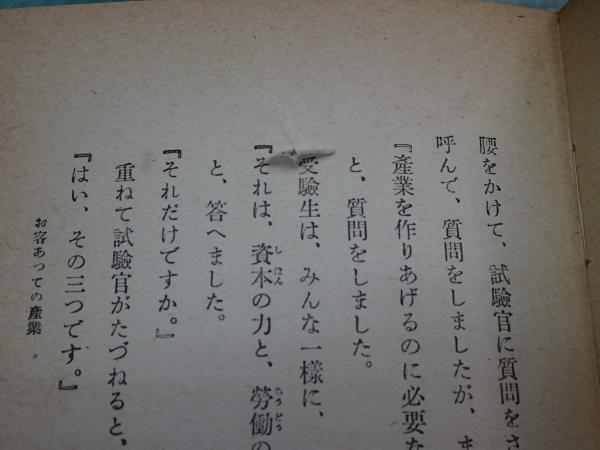 腰をかけて、試驗官に質問をさ
呼んで、質問をしましたが、ま
『産業を作りあげるのに必要な
と、質問をしました。
受驗生は、みんな一樣に、
『それは、資本の力と、勞働の
しほん
らうどう
と、答へました。
『それだけですか。』
重ねて試驗官がたづねると、
『はい、その三つです。』
お客あつての産業